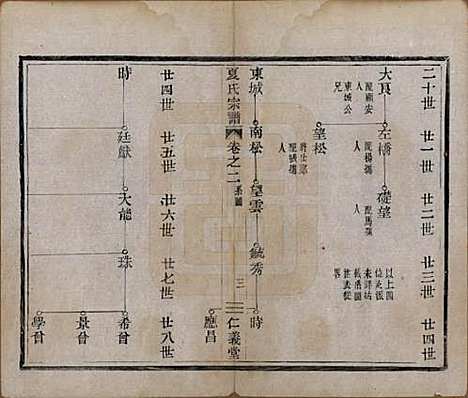 二十世 廿一世 廿二世 廿三世 廿四世
大良
配顧安人
東城公兄
左橋
配楊孺人
礎望
配馬孺人
以上四
望松
東城
南松
望雲
毓秀
時
應昌
夏氏宗譜 卷之二 系圖 三 仁義堂
廿四世 廿五世 廿六世 廿七世 廿八世
時
廷獻
大龍
珠
希曾
景曾
學曾